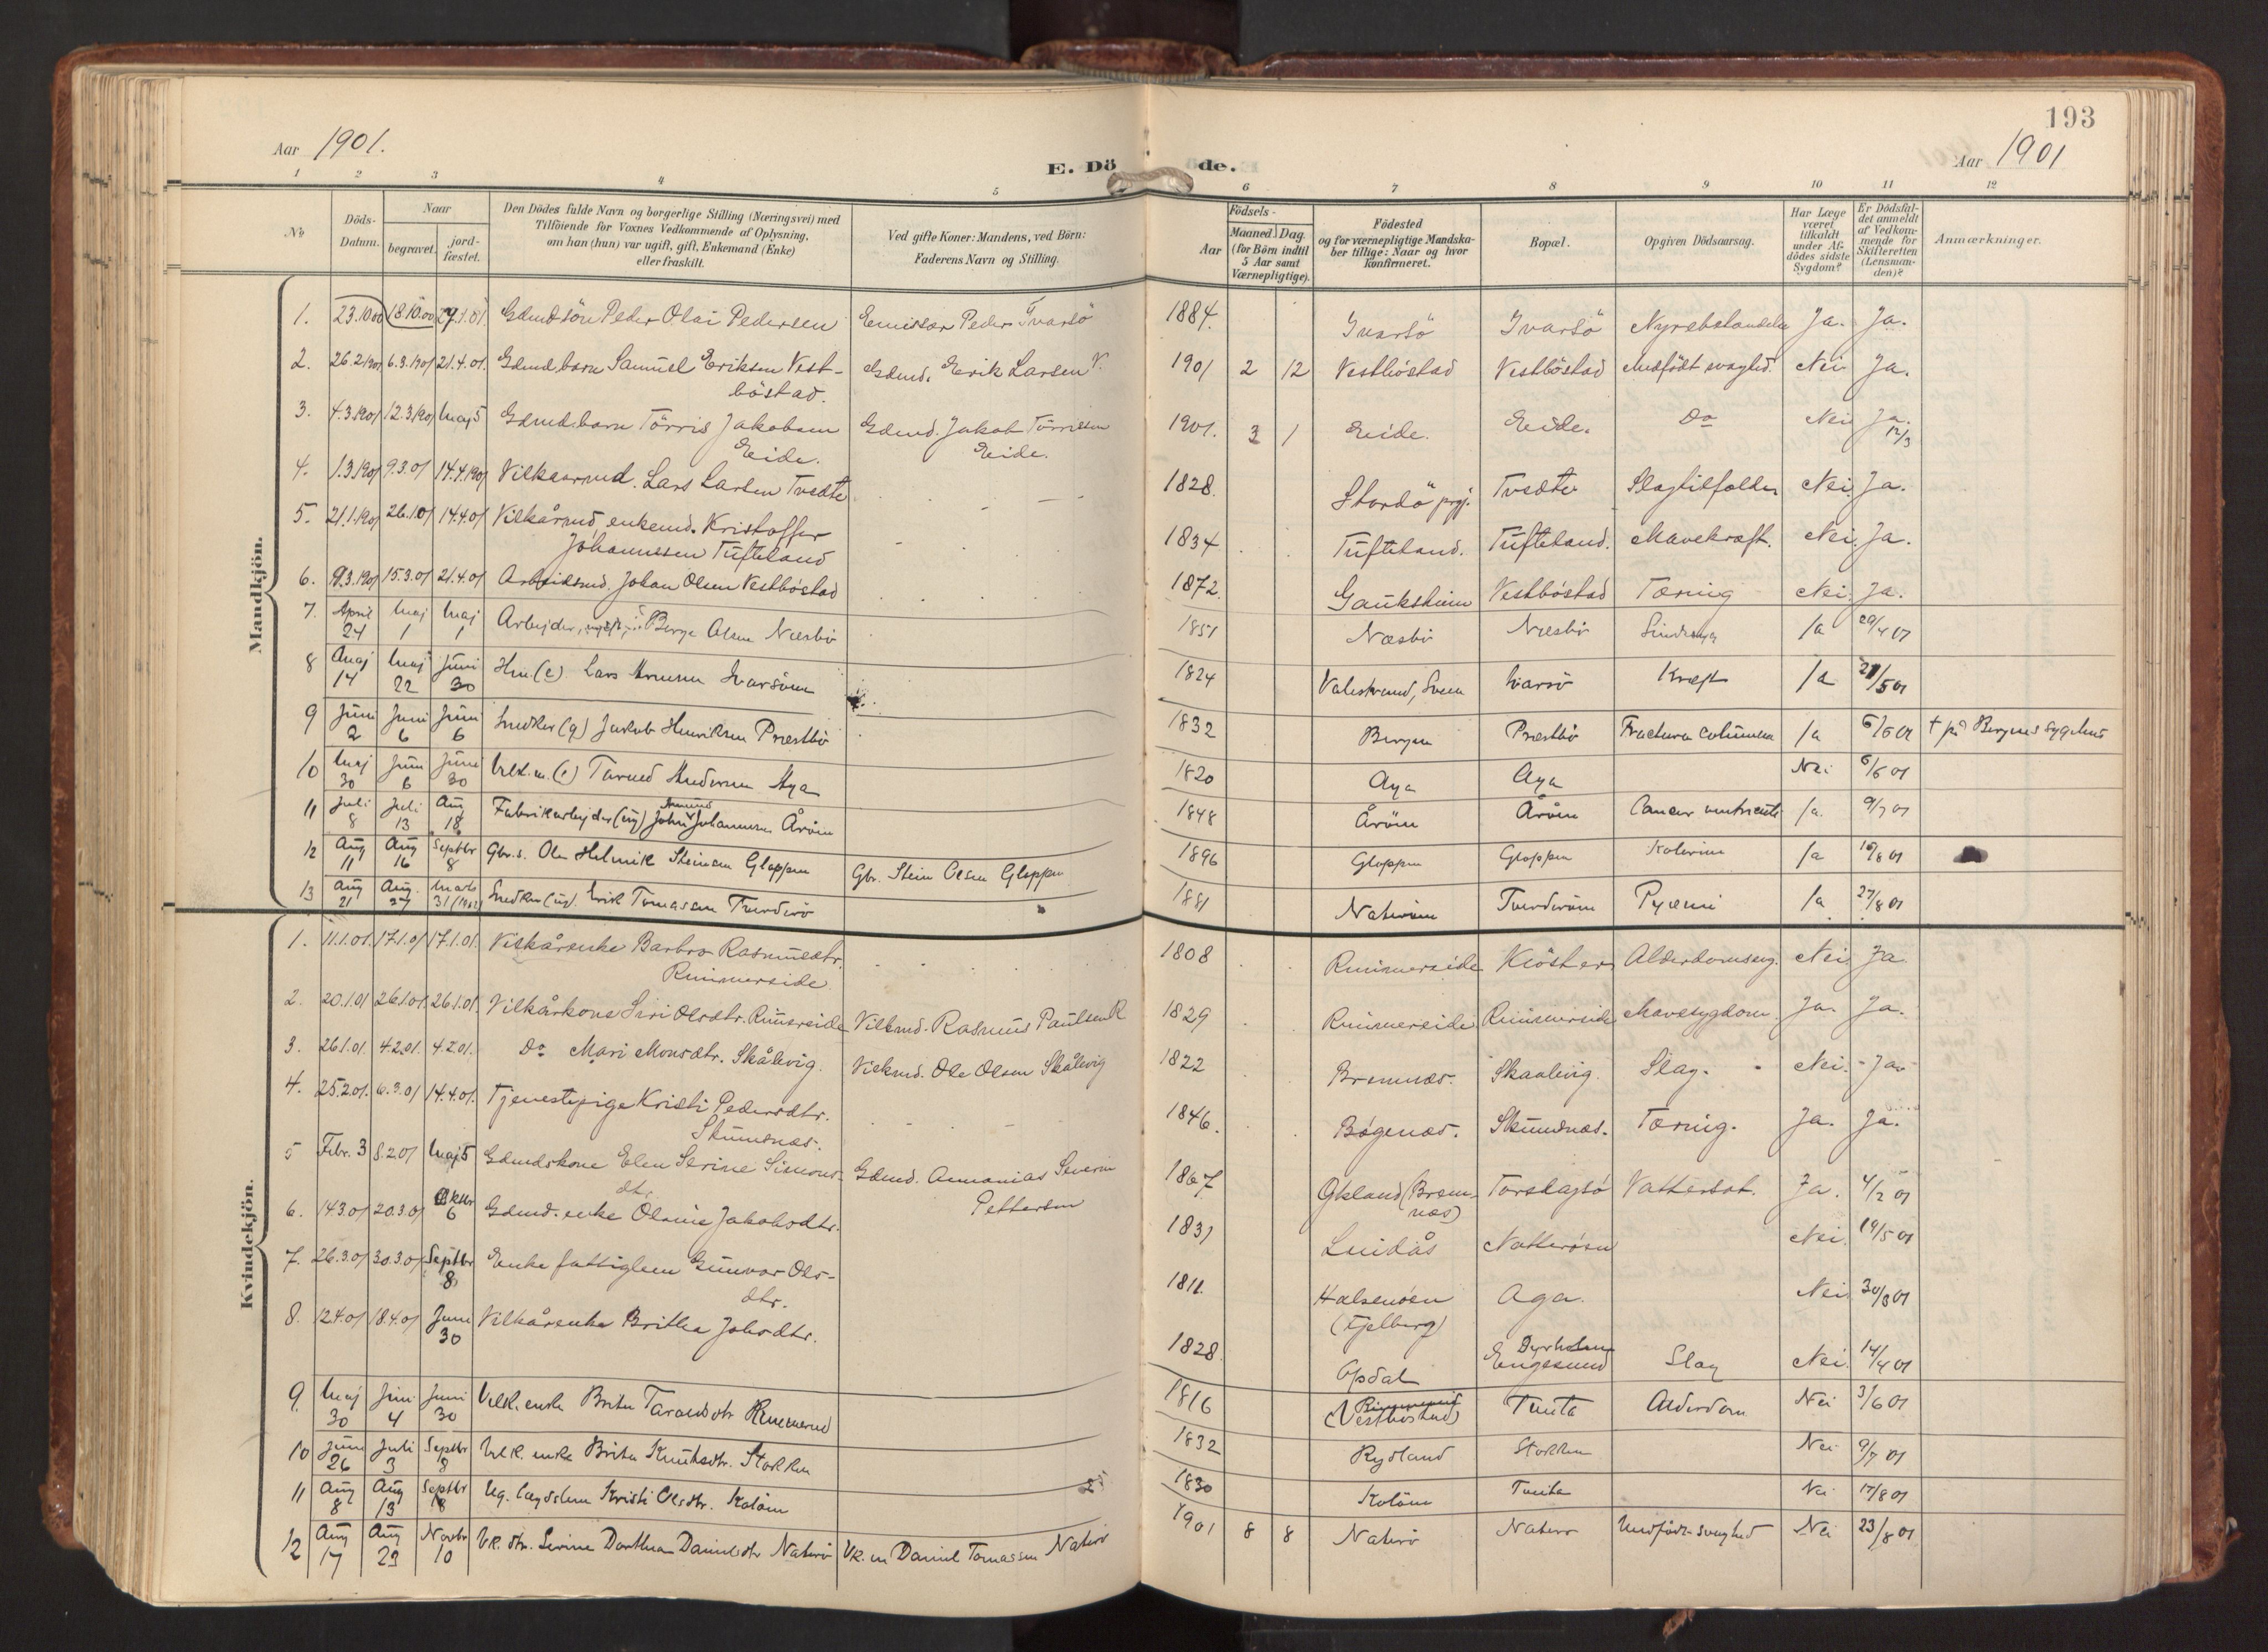 193
Aar 1901.
E. Döde.
Aar 1901
1 2 3 4 5 6 7 8 9 10 11 12
No
Döds-Datum.
Naar
begravet.
jord-fæstet.
Den Dödes fulde Navn og borgerlige Stilling (Næringsvei) med
Tilföiende for Voxnes Vedkommende af Oplysning,
om han (hun) var ugift, gift, Enkemand (Enke)
eller fraskilt.
Ved gifte Koner: Mandens, ved Börn:
Faderens Navn og Stilling.
Födsels-
Aar
Maaned. Dag.
(for Börn indtil
5 Aar samt
Værnepligtige).
Födested
og for værnepligtige Mandska-
ber tillige: Naar og hvor
konfirmeret.
Bopæl.
Opgiven Dödsaarsag.
Har Læge
været
tilkaldt
under Af-
dödes sidste
Sygdom?
Er Dödsfal-
det anmeldt
af Vedkom-
mende for
Skifteretten
(Lensman-
den)?
Anmærkninger.
Mandkjön.
1. 23.10.00 18.10.00 29.1.01. Gdmdsön Peder Olai Pedersen Emissær Peder Ivarsö 1884. Ivarsö Ivarsö Ja. Ja.
2. 26.2.1901 6.3.1901 21.4.01. Gdmdbarn Samuel Eriksen Vest- Gdmd. Erik Larsen V. 1901 2 12 Vestböstad Vestböstad Medfödt svaghed. Nei Ja.
böstad.
3. 4.3.1901 12.3.1901 Maj 5 Gdmdbarn Törris Jakobsen Gdmd. Jakob Törrissen 1901. 3 1 Eide. Eide. Do Nei Ja. 12/3
Eide. Eide.
4. 1.3.1901 9.3.01 14.4.1901 Vilkaarmd. Lars Larsen Tvedte 1828. Stordö prgj. Tvedte Slagtilfælde Nei Ja.
5. 21.1.1901 26.1.01 14.4.01 Vilkårmd, enkemd. Kristoffer 1834 Tufteland. Tufteland. Mavekræft. Nei. Ja.
Johannessen Tufteland
6. 9.3.1901 15.3.01 21.4.01 Arbeidsmd. Johan Olsen Vestböstad 1872. Gauksheim Vestböstad Tæring Nei. Ja.
7. April 24 Maj 1 Maj 1 Arbejder, Berge Olsen Næsbö 1851 Næsbö Næsbö Ja 29/4 01
8 Maj 14 Maj 22 Juni 30 Hm. (e) Lars 1824 Valestrand, Sveen Ivarsö Kræft Ja 21/5 01
9 Juni 2 Juni 6 Juni 6 Snedker (g) Jakob Henriksen Præstbö 1832 Bergen Præstbö Fractura columna Ja 6/6 01 † på Bergens Sygehus
10 Maj 30 Juni 6 Juni 30 Vilk. m. (e) Aga 1820 Aga Aga Nei 6/6 01
11 Juli 8 Juli 13 Aug 18 Fabrikarbejder (ug) John Johannesen Åröen 1848 Åröen Åröen Cancer ventriculi Ja. 9/7 01
12 Aug 11 Aug 16 Septbr 8 Gbr.s. Ole Helmik Steinsen Gloppen Gbr. Stein Olsen Gloppen 1896 Gloppen Gloppen Kolerine Ja 16/8 01
13 Aug 21 Aug. 27 Marts 31 (1902) Snedker (ug). Erik Tomassen 1881 Naterøen Pyæmi Ja 27/8 01
Kvindekjön.
1. 11.1.01. 17.1.01 17.1.01. Vilkårenke Barbro Rasmusdtr. 1808 Rimmereide Klöster Alderdomssvag. Nei Ja.
Rimmereide.
2. 20.1.01 26.1.01. 26.1.01. Vilkårkone Siri Olsdtr. Rimereide Vilkmd. Rasmus Paulsen R 1829 Rimmereide Rimmereide Mavesygdom. Ja. Ja.
3. 26.1.01. 4.2.01. 4.2.01. Do Mari Monsdtr. Skålevig. Vilkmd. Ole Olsen Skålevig 1822 Bremnæs. Skaalevig. Slag. Nei. Ja.
4. 25.2.01. 6.3.01 14.4.01. Tjenestepige Kristi Pedersdtr. 1846. Bøgenæs. Skumsnæs. Tæring. Ja. Ja.
Skumsnæs.
5 Febr. 3 8.2.01 Maj 5 Gdmdskone Elen Serine Simons- Gdmd. Annanias Severin 1867 Økland (Brem- Vattersot. Ja. 4/2 01
dtr. Pettersen næs)
6. 14.3.01 20.3.01 Oktbr 6 Gdmd. enke Olsine Jakobsdtr. 1831 Lindås Natterøen Nei. 19/5 01
7. 26.3.01 30.3.01 Septbr 8 Enke fattiglem Gunvor Ols- 1811. Halsenøen Aga. Nei 30/3 01
dtr. (Fjelberg)
8. 12.4.01 18.4.01 Juni 30 Vilkårenke Britha Johsdtr. 1828. Opdal Dyrholmen Engesund Slag Nei. 14/4 01
9. Maj 30 Juni 4 Juni 30 Vilk. enke Brita 1816 (Vestbøstad) Tveita Alderdom Nei 3/6 01
10 Juni 26 Juli 3 Septbr 8 Vilk. enke Brita Knutsdtr. Stokken 1832 Rydland Stokken Nei 9/7 01
11 Aug 8 Aug 13 Septbr 8 Ug. lægdslem Kristi Olsdtr. Koløen 1830 Koløen Tveita Nei 17/8 01
12 Aug 17 Aug 23 Novbr 10 Vk. dtr. Serine Dorthea Danielsdtr Naterø Vk. m Daniel Tomassen Naterø 1901 8 8 Naterø Naterø Medfödt svaghed Nei 23/8 01